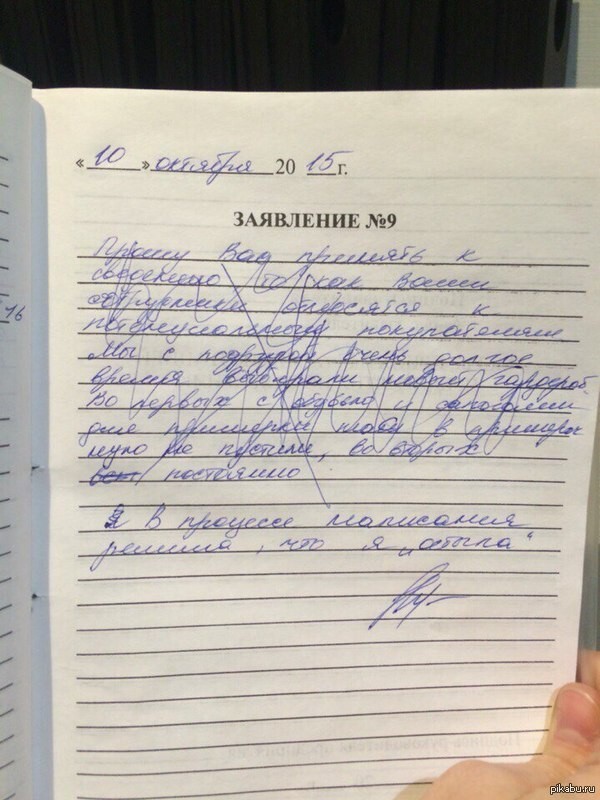 « 10 » октября 20 15 г.
ЗАЯВЛЕНИЕ №9
Прошу Вас принять к
сведению то как Ваши
сотрудники относятся к
потенциальному покупателям.
Мы с подругой очень долгое
время выбирали новый гардероб.
Во первых с обувью и
для примерки в примероч
ную не пустили, во вторых
постоянно
В процессе написания
решила, что я „остыла“
16
pikabu.ru